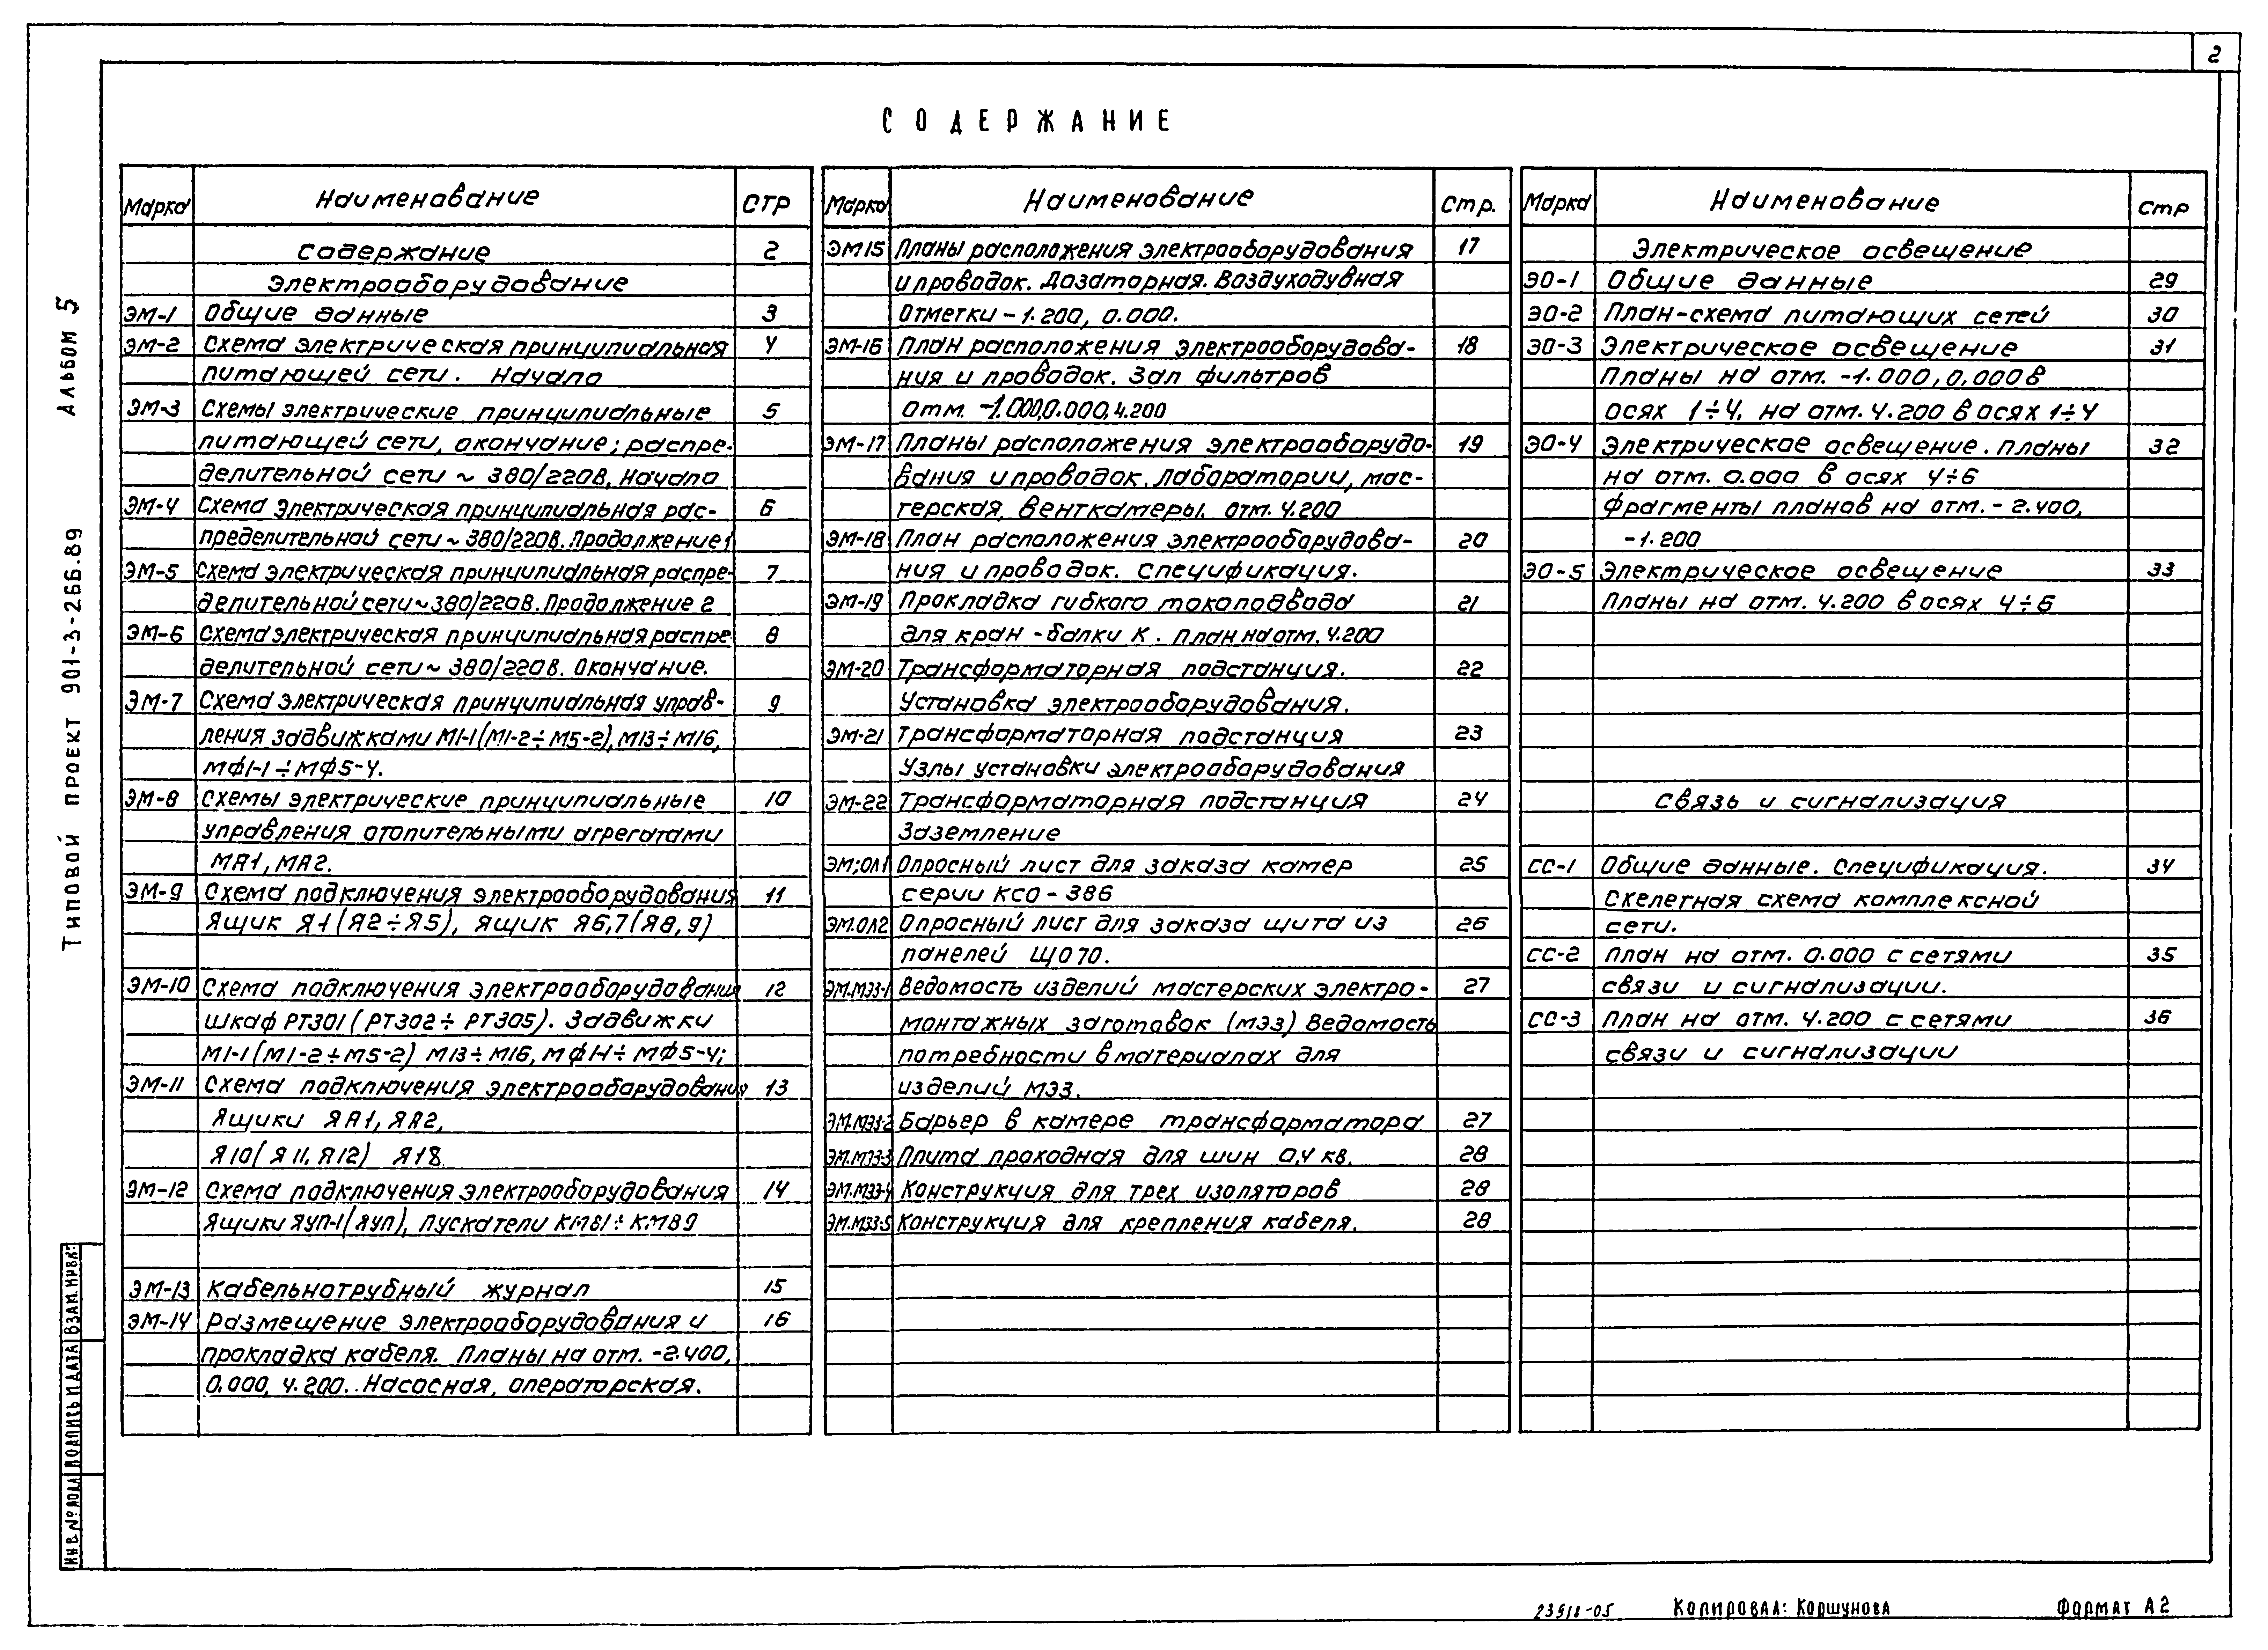 2
СОДЕРЖАНИЕ
Типовой проект 901-3-266.89 Альбом 5
Марка Наименование СТР
Содержание 2
Электрооборудование
ЭМ-1 Общие данные 3
ЭМ-2 Схема электрическая принципиальная 4
питающей сети. Начало
ЭМ-3 Схемы электрические принципиальные 5
питающей сети, окончание; распре-
делительной сети ~ 380/220В, Начало
ЭМ-4 Схема электрическая принципиальная рас- 6
пределительной сети ~ 380/220В. Продолжение 1
ЭМ-5 Схема электрическая принципиальная распре- 7
делительной сети ~ 380/220В. Продолжение 2
ЭМ-6 Схема электрическая принципиальная распре 8
делительной сети ~ 380/220В. Окончание.
ЭМ-7 Схема электрическая принципиальная управ- 9
ления задвижками М1-1(М1-2÷М5-2), М13÷М16,
МФ1-1÷МФ5-4.
ЭМ-8 Схемы электрические принципиальные 10
управления отопительными агрегатами
МА1, МА2.
ЭМ-9 Схема подключения электрооборудования 11
Ящик Я1(Я2÷Я5), Ящик Я6,7(Я8,9)
ЭМ-10 Схема подключения электрооборудования 12
шкаф РТ301(РТ302÷РТ305). Задвижки
М1-1(М1-2÷М5-2) М13÷М16, МФ1-1÷МФ5-4;
ЭМ-11 Схема подключения электрооборудования 13
Ящики ЯА1, ЯА2,
Я10(Я11, Я12) Я18
ЭМ-12 Схема подключения электрооборудования 14
Ящики ЯУП-1(ЯУП), Пускатели КМ81÷КМ89
ЭМ-13 Кабельнотрубный журнал 15
ЭМ-14 Размещение электрооборудования и 16
прокладка кабеля. Планы на отм. -2.400,
0.000, 4.200. Насосная, операторская.
Марка Наименование Стр.
ЭМ15 Планы расположения электрооборудования 17
и проводок. Дозаторная. Воздуходувная
Отметки -1.200, 0.000.
ЭМ-16 План расположения электрооборудова- 18
ния и проводок. Зал фильтров
отм. -1.000, 0.000, 4.200
ЭМ-17 Планы расположения электрооборудо- 19
вания и проводок. Лаборатории, мас-
терская, венткамеры. отм. 4.200
ЭМ-18 План расположения электрооборудова- 20
ния и проводок. Спецификация.
ЭМ-19 Прокладка гибкого токоподвода 21
для кран-балки К. План на отм. 4.200
ЭМ-20 Трансформаторная подстанция. 22
Установка электрооборудования.
ЭМ-21 Трансформаторная подстанция 23
Узлы установки электрооборудования
ЭМ-22 Трансформаторная подстанция 24
Заземление
ЭМ;ОЛ1 Опросный лист для заказа камер 25
серии КСО-386
ЭМ.ОЛ2 Опросный лист для заказа щита из 26
панелей ЩО70.
ЭМ.МЭЗ-1 Ведомость изделий мастерских электро- 27
монтажных заготовок (МЭЗ) Ведомость
потребности в материалах для
изделий МЭЗ.
ЭМ.МЭЗ-2 Барьер в камере трансформатора 27
ЭМ.МЭЗ-3 Плита проходная для шин 0,4 кв. 28
ЭМ.МЭЗ-4 Конструкция для трех изоляторов 28
ЭМ.МЭЗ-5 Конструкция для крепления кабеля. 28
Марка Наименование Стр
Электрическое освещение
ЭО-1 Общие данные 29
ЭО-2 План-схема питающих сетей 30
ЭО-3 Электрическое освещение 31
Планы на отм. -1.000, 0.000 в
осях 1÷4, на отм. 4.200 в осях 1÷4
ЭО-4 Электрическое освещение. Планы 32
на отм. 0.000 в осях 4÷6
Фрагменты планов на отм. -2.400,
-1.200
ЭО-5 Электрическое освещение 33
Планы на отм. 4.200 в осях 4÷6
Связь и сигнализация
СС-1 Общие данные. Спецификация. 34
Скелетная схема комплексной
сети.
СС-2 План на отм. 0.000 с сетями 35
связи и сигнализации.
СС-3 План на отм. 4.200 с сетями 36
связи и сигнализации
ИНВ.№ ПОДЛ ПОДПИСЬ И ДАТА ВЗАМ.ИНВ.№
23918-05 Копировал: Коршунова Формат А2